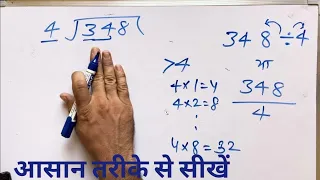 4 ) 348 (
348 ÷ 4
या
348
4
>4
4×1=4
4×2=8
⋮
4×8=32
आसान तरीके से सीखें